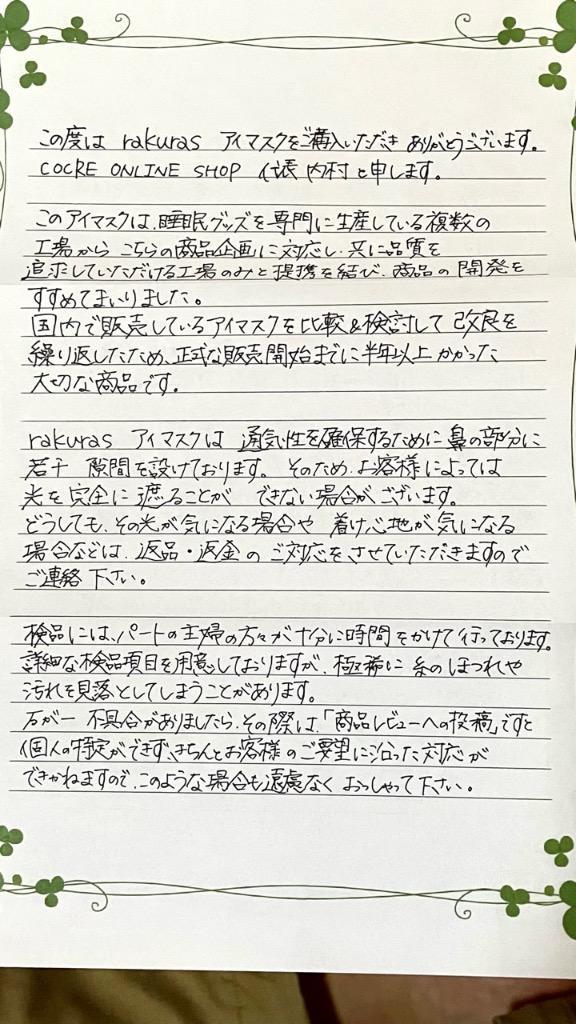 この度は rakuras アイマスクをご購入いただき ありがとうございます。
COCRE ONLINE SHOP 店長 内村と申します。
このアイマスクは、睡眠グッズを専門に生産している複数の
工場から こちらの商品企画に対応し、共に品質を
追求していただける工場のみと提携を結び、商品の開発を
すすめてまいりました。
国内で販売しているアイマスクを比較&検討して 改良を
繰り返したため、正式な販売開始までに半年以上かかった
大切な商品です。
rakuras アイマスクは 通気性を確保するために鼻の部分に
若干 隙間を設けております。そのため、お客様によっては
光を完全に遮ることが できない場合がございます。
どうしても、その光が気になる場合や 着け心地が気になる
場合などは、返品・返金のご対応をさせていただきますので
ご連絡下さい。
検品には、パートの主婦の方々が十分に時間をかけて行っております。
詳細な検品項目を用意しておりますが、極稀に糸のほつれや
汚れを見落としてしまうことがあります。
万が一 不具合がありましたら、その際は、「商品レビューへの投稿」ですと
個人の特定ができず、きちんとお客様のご要望に沿った対応が
できかねますので、このような場合も遠慮なく おっしゃって下さい。